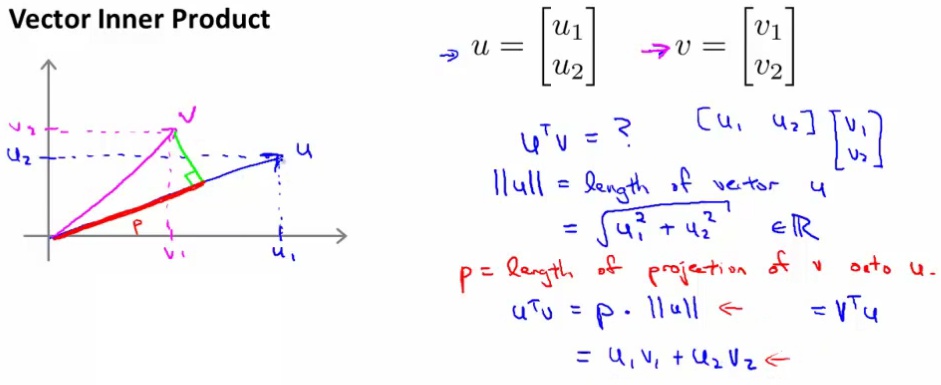 Vector Inner Product
⇒ u = [u1 u2] → v = [v1 v2]
v2
u2
v
u
p
v1
u1
uᵀv = ? [u1 u2] [v1 v2]
||u|| = length of vector u
= √(u1² + u2²) ∈ ℝ
p = length of projection of v onto u.
uᵀv = p · ||u|| ← = vᵀu
= u1v1 + u2v2 ←